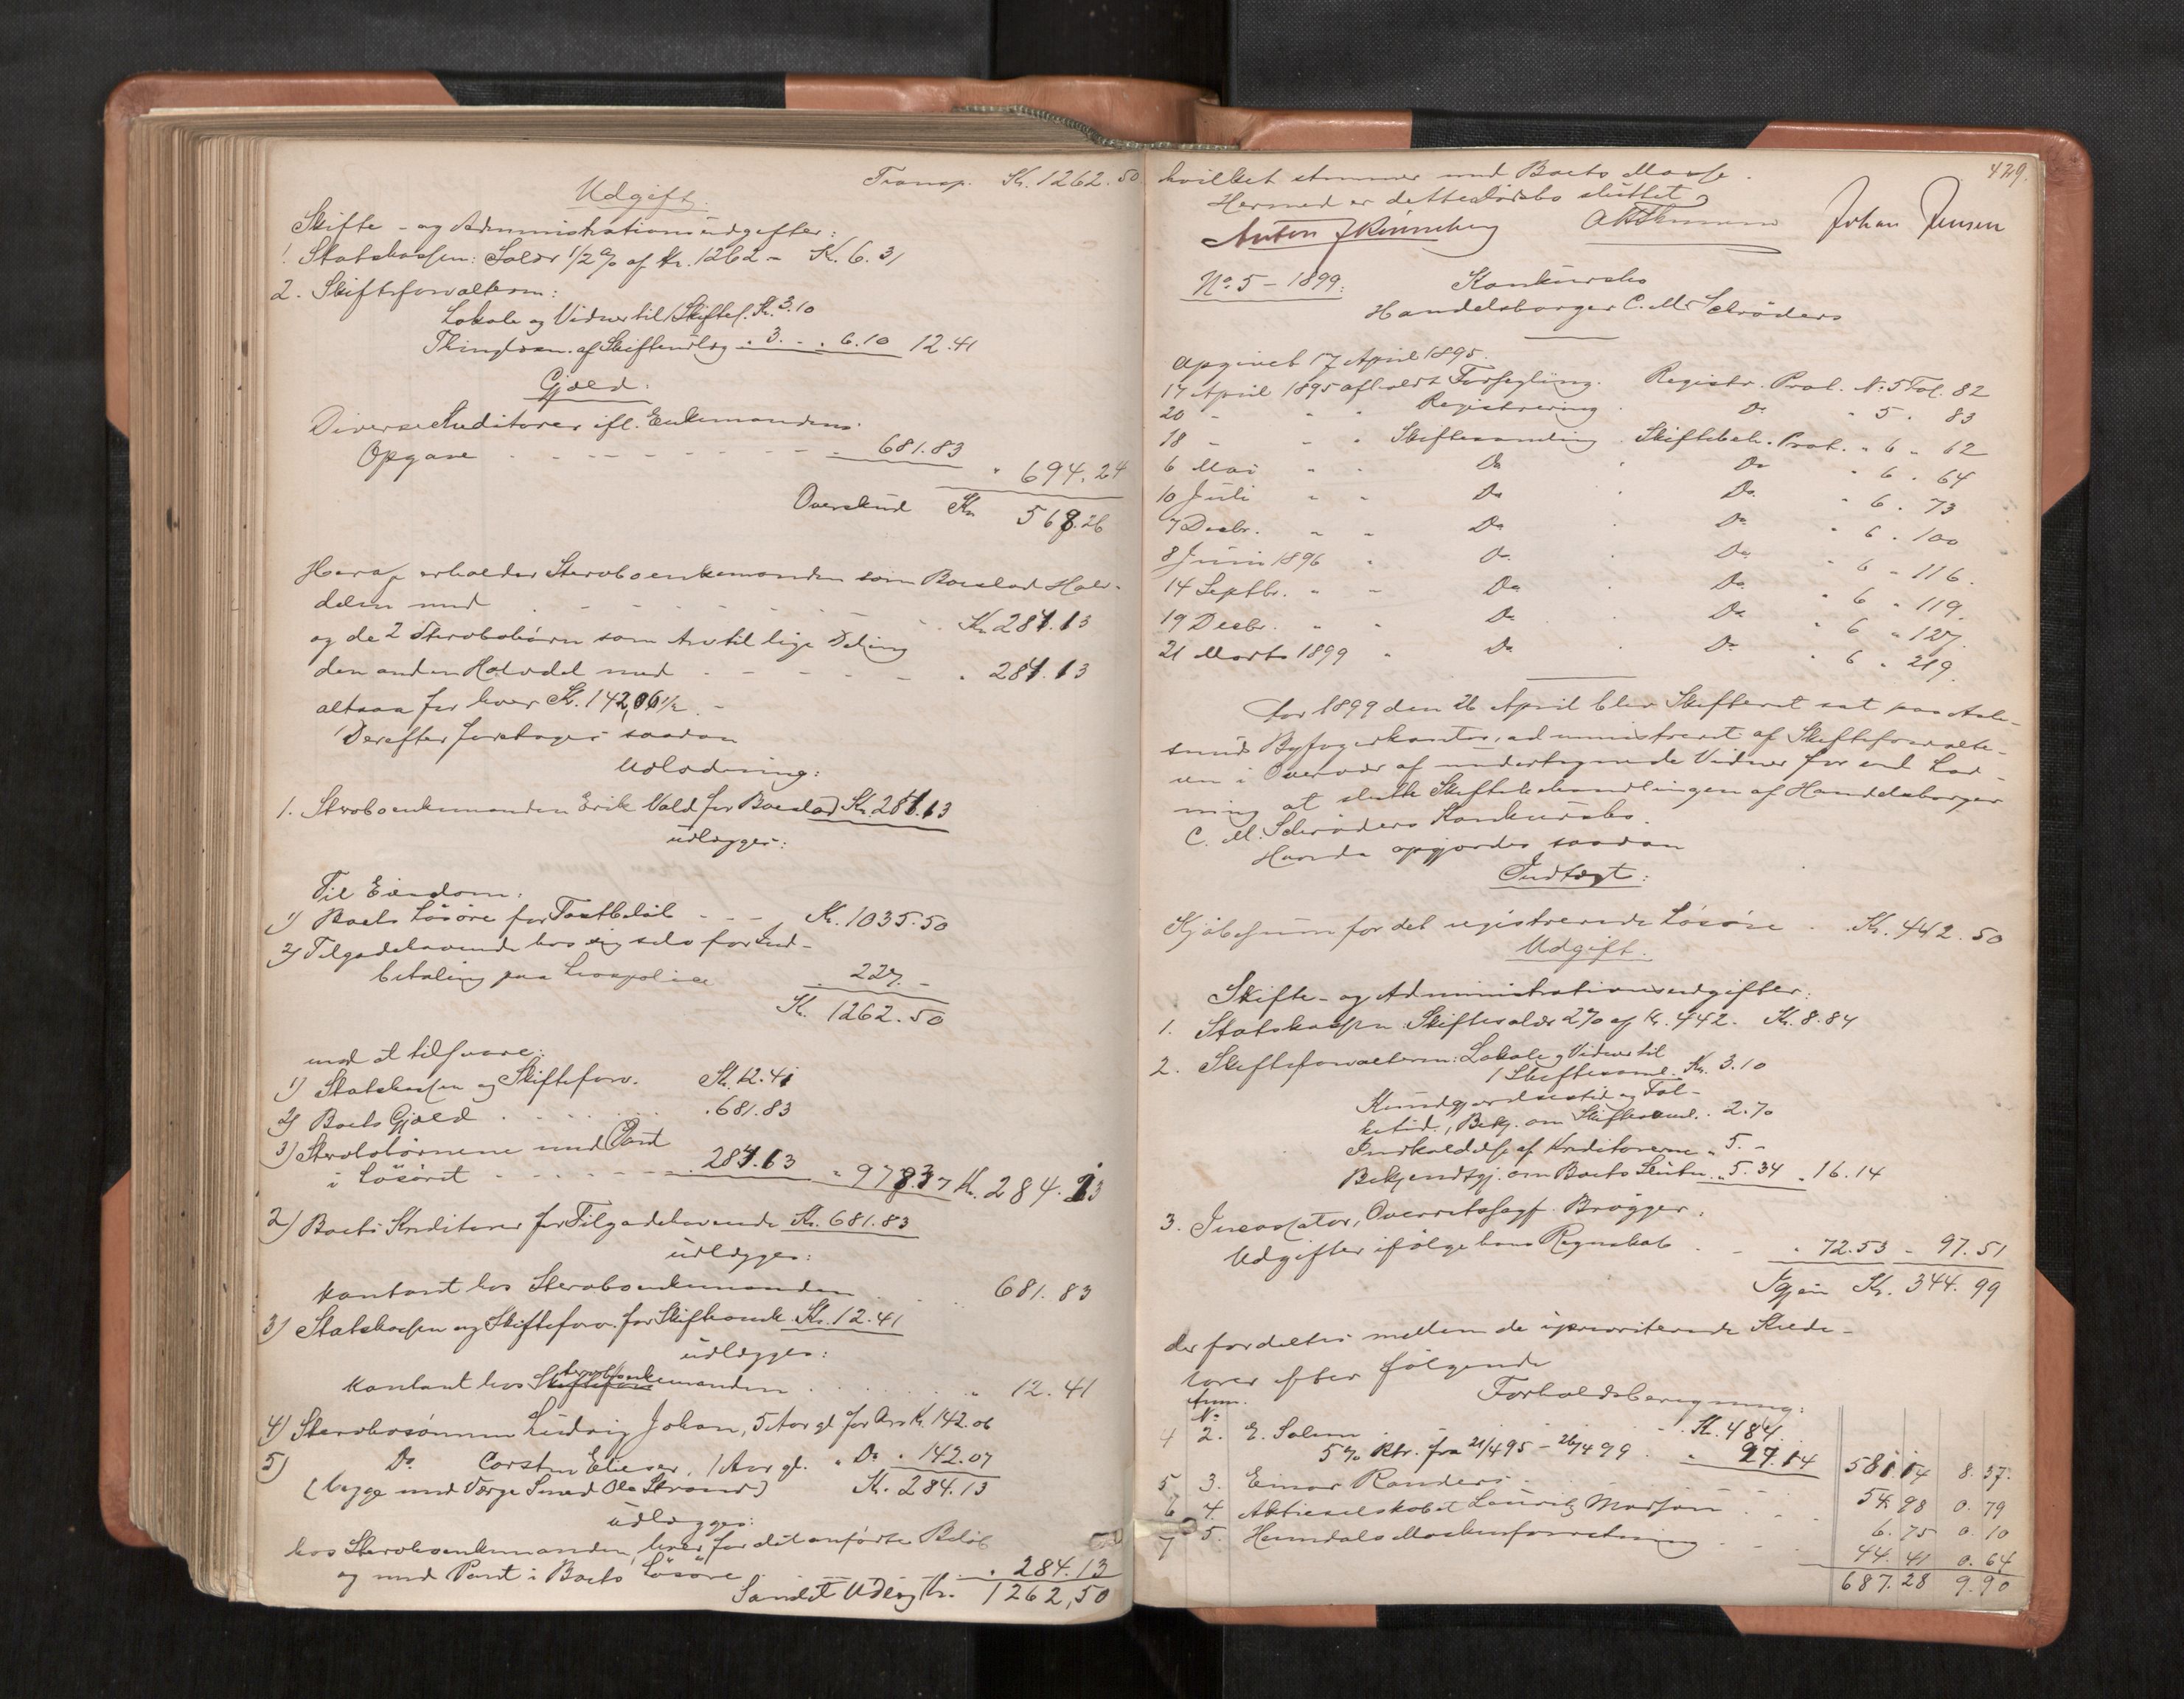 Transp. Kr. 1262.50
Udgift.
Skifte- og Administrationsudgifter:
1. Statskassen: Solær 1/2 % af Kr. 1262 - K. 6.31
2. Skifteforvalteren:
Lokale og Vidner til 1 Skiftes. Kr. 3.10
Thinglæsn. af Skifteudlæg " 3. - " 6.10 12.41
Gjæld.
Diverse Kreditorer ifl. Enkemandens
Opgave 681.83
" 694.24
Overskud Kr 568.26
Heraf erholder Sterboenkemanden som Boeslod Halv-
delen med Kr. 284.13
og de 2 Sterbobörn som Arv til lige Deling
den anden Halvdel med " 284.13
altsaa for hver Kr. 142,06 1/2 -
Derefter foretages saadan
Udlodning:
1. Sterboenkemanden Erik Vold for Boeslod Kr. 284.13
udlægges:
Til Eiendom:
1) Boets Lösöre for Taxtbelöb - - - Kr. 1035.50
2) Tilgodehavende hos sig selv for Ind-
betaling paa Livspolice 227. -
Kr. 1262.50
mod at tilsvare:
1) Statskassen og Skifteforv. Kr. 12.41
2) Boets Gjæld " 681.83
3) Sterbobörnene med Pant
i Lösöret 284.13 " 978.37 Kr. 284.13
2) Boets Kreditorer for Tilgodehavende Kr. 681.83
udlægges:
kontant hos Sterboenkemanden 681.83
3) Statskassen og Skifteforv. for Skifteomk. Kr. 12.41
udlægges:
kontant hos Sterboenkemanden " 12.41
4) Sterbosönnen Ludvig Johan, 5 Aar gl. for Arv Kr. 142.06
5) Do Carsten Elieser, 1 Aar gl. " Do " 142.07
(begge med Værge Smed Ole Strand) Kr. 284.13
udlægges:
hos Sterboenkemanden, hver for det anförte Belöb
og med Pant i Boets Lösöre " 284.13
Samlet Udlæg Kr. 1262,50
429.
hvilket stemmer med Boets Masse.
Hermed er dette Dödsbo sluttet
Anton Johan Jensen
No 5 - 1899:
Konkursbo
Handelsborger C. M. Schröders
Opgivet 17 April 1895.
17 April 1895 afholdt Forsegling. Registr. Prot. No 5 Fol. 82
20 - " " Registrering. Do " 5 " 83
18 - " " Skiftesamling. Skiftebeh. Prot. " 6 " 62
6 Mai " " Do " Do " 6 " 64
10 Juli " " Do " Do " 6 " 73
7 Decbr. " " Do " Do " 6 " 100
8 Juni 1896 " Do " Do " 6 " 116.
14 Septbr. " " Do " Do " 6 " 119.
19 Decbr. " " Do " Do " 6 " 127.
21 Marts 1899 " Do " Do " 6 " 219.
Aar 1899 den 26 April blev Skifteret sat paa Aale-
sunds Byfogedkontor, administreret af Skifteforvalte-
ren i Overvær af undertegnede Vidner for
at slutte Skiftebehandlingen af Handelsborger
C. M. Schröders Konkursbo.
Hvorda opgjordes saadan
Indtægt:
Kjöbesum for det registrerede Lösöre . Kr. 442.50
Udgift.
Skifte- og Administrationsudgifter:
1. Statskassen: Skiftesolær 2% af Kr. 442. Kr. 8.84
2. Skifteforvalteren: Lokale og Vidner til
1 Skiftesaml. Kr. 3.10
Kundgjörelsestid. og Aal-
ketid., Bekj. om Skiftesaml. " 2.70
Indkaldelse af Kreditorerne " 5. -
Bekjendtgj. om Boets Slutn. " 5.34 " 16.14
3. Incassator, Overretssagf. Brögger,
Udgifter ifölge hans Regnskab " 72.53 - 97.51
Igjen Kr. 344.99
der fordeltes mellem de uprioriterede Kredi-
torer efter fölgende
Forholdsberegning:
Anm.
No
4 2. E. Solem K. 484.
5 % Rtr. fra 21/4 95 - 26/4 99 " 97.14 581.14 8.37.
5 3. Einar Randers 54.98 0.79
6 4. Aktieselskabet Lauritz Madsen 6.75 0.10
7 5. Heimdals Maskinforretning 44.41 0.64
687.28 9.90